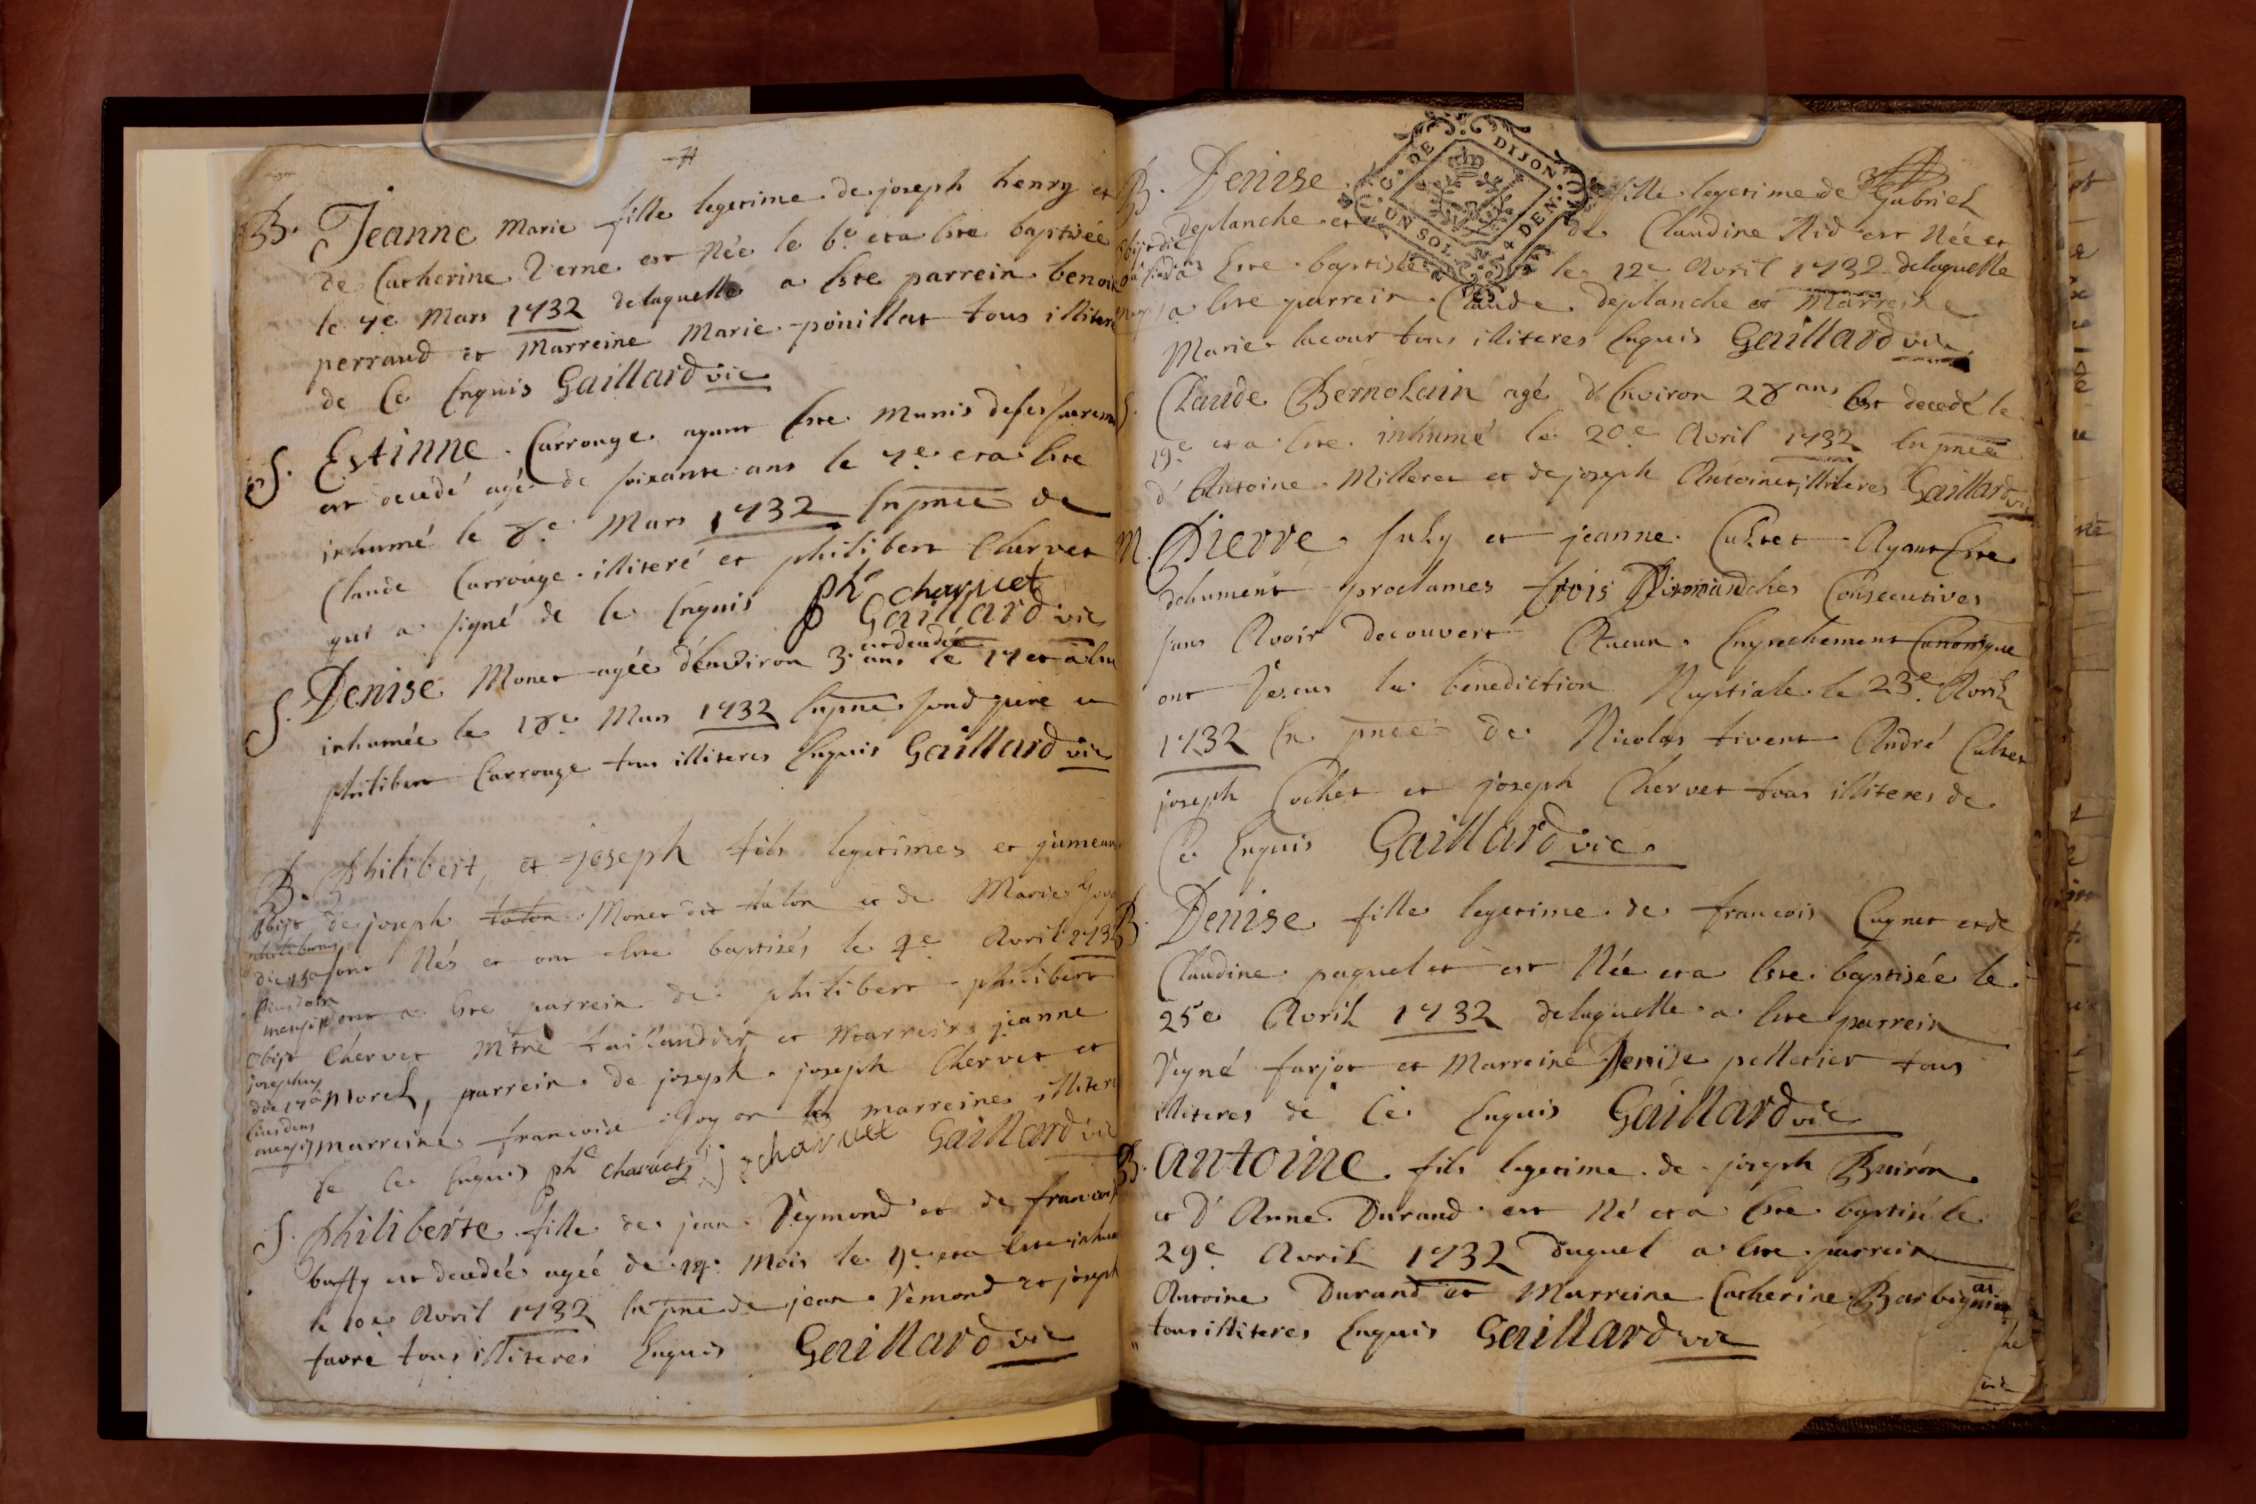 B. Jeanne Marie fille legetime de joseph henry et
de Catherine Verne est Née le 6e et a ete baptisée
le 7e Mars 1732 de laquelle a ete parrein benoit
perraud et Marreine Marie poüillat tous illiteres
de Ce Enquis Gaillard vic
S. Estinne Carrouge ayant Ete Munis de ses
est decedé agé de soixante ans le 7e et a Ete
inhumé le 8e Mars 1732 En pnce de
Claude Carrouge illiteré et philibert Chervet
qui a signé de Ce Enquis ph charvet
Gaillard vic
est decedée
S. Denise Monet agée d'Environ 3 ans le 17 et a Ete
inhumée le 18e Mars 1732 En pnce
philibert Carrouge tous illiteres Enquis Gaillard vic
B. Philibert, et joseph fils legetimes et jumeaux
de joseph talon Monet dit talon et de Marie
sont Nés et ont Ete baptisés le 4e Avril 1732
a Ete parrein de philibert philibert
Chervet Mtre taillandier et Marreine jeanne
Morel, parrein de joseph joseph Chervet et
marreine francoise Goyon les marreines illiteres
de Ce Enquis ph charvet j charvet Gaillard vic
obijt
philibertus
die 15a
Eiusdem
mensis
obijt
josephus
die 17a
Eiusdem
mensis
S. philiberte fille de jean Reymond et de francoise
buffy est decedée ageé de 14 Mois le 9e et a Ete inhumée
le 10e Avril 1732 En pnce de jean Remond et joseph
favre tous illiteres Enquis Gaillard vic
C. DE DIJON
UN SOL 4 DEN
B. Denise fille legetime de Gabriel
deplanche et de Claudine Nid est Née et
a Ete baptisée le 12e Avril 1732 de laquelle
a Ete parrein Claude deplanche et Marreine
Marie lacour tous illiteres Enquis Gaillard vic
S. Claude Bernolain agé d'Environ 28 ans Est decedé le
19e et a Ete inhumé le 20e Avril 1732 En pnce
d'Antoine Milleret et de joseph Antoinet illiteres Gaillard vic
M. Pierre July et jeanne Cultet Ayant Ete
dehument proclames trois Dimandches Consecutives
sans Avoir decouvert Aucun Empechement Canonique
ont Receus la benediction Nuptiale le 23e Avril
1732 En pnce de Nicolas tivent André Cultet
joseph Cochet et joseph Chervet tous illiteres de
Ce Enquis Gaillard vic
B. Denise fille legetime de francois Cugnet et de
Claudine paquelet est Née et a Ete baptisée le
25e Avril 1732 de laquelle a Ete parrein
Reyné farjot et Marreine Denise pelletier tous
illiteres de Ce Enquis Gaillard vic
B. Antoine fils legetime de joseph Buiron
et D'Anne Durand est Né et a Ete baptisé le
29e Avril 1732 duquel a Ete parrein
Antoine Durand et Marreine Catherine
tous illiteres Enquis Gaillard vic